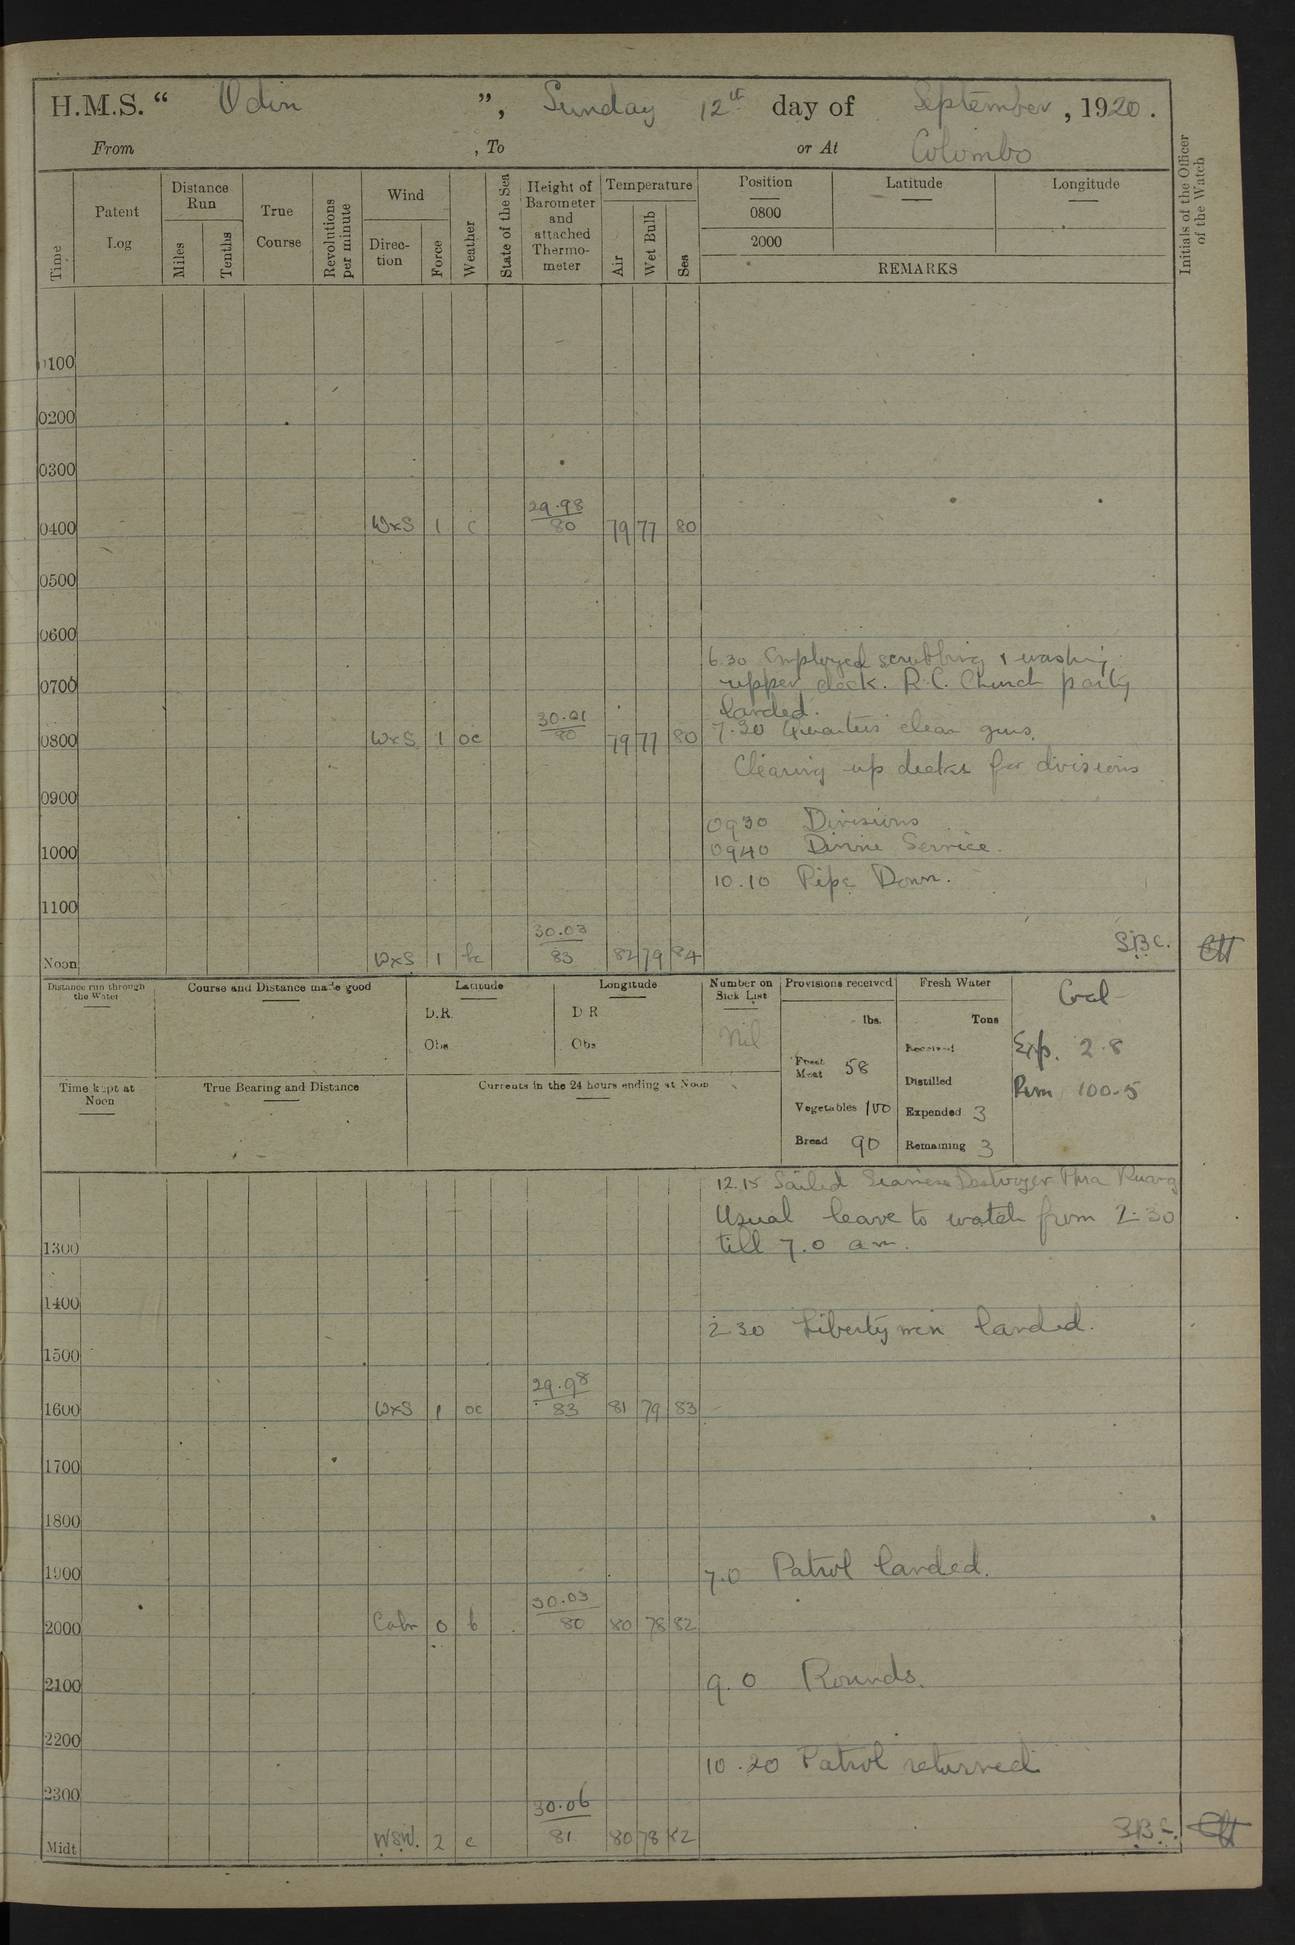 H.M.S. “ Odin ”, Sunday 12th day of September, 1920.
From , To or At Colombo
Time
Patent Log
Distance Run
Miles
Tenths
True Course
Revolutions per minute
Wind
Direction
Force
Weather
State of the Sea
Height of Barometer and attached Thermometer
Temperature
Air
Wet Bulb
Sea
Position
0800
2000
Latitude
Longitude
REMARKS
Initials of the Officer of the Watch
0100
0200
0300
0400 WxS 1 c 29.98 80 79 77 80
0500
0600
6.30 Employed scrubbing & washing
0700 upper deck. R.C. Church party
landed.
0800 WxS 1 oc 30.01 80 79 77 80 7.30 Quarters clean guns.
Clearing up decks for divisions
0900
0930 Divisions
1000 0940 Divine Service.
10.10 Pipe Down.
1100
Noon WxS 1 bc 30.03 83 82 79 84 S.B.C.
Distance run through the Water
Course and Distance made good
Latitude
D.R.
Obs
Longitude
D R
Obs
Number on Sick List
Nil
Provisions received
lbs.
Fresh Meat 58
Vegetables 100
Bread 90
Fresh Water
Tons
Received
Distilled
Expended 3
Remaining 3
Coal
Exp. 2.8
Rem 100.5
Time kept at Noon
True Bearing and Distance
Currents in the 24 hours ending at Noon
12.15 Sailed Siamese Destroyer Phra Ruang
Usual leave to watch from 2.30
1300 till 7.0 am.
1400
2 30 Liberty men landed.
1500
1600 WxS 1 oc 29.98 83 81 79 83
1700
1800
1900 7.0 Patrol landed.
2000 Calm 0 b 30.03 80 80 78 82
2100 9.0 Rounds.
2200
10.20 Patrol returned
2300
Midt WSW. 2 c 30.06 81 80 78 82 S.B.C.